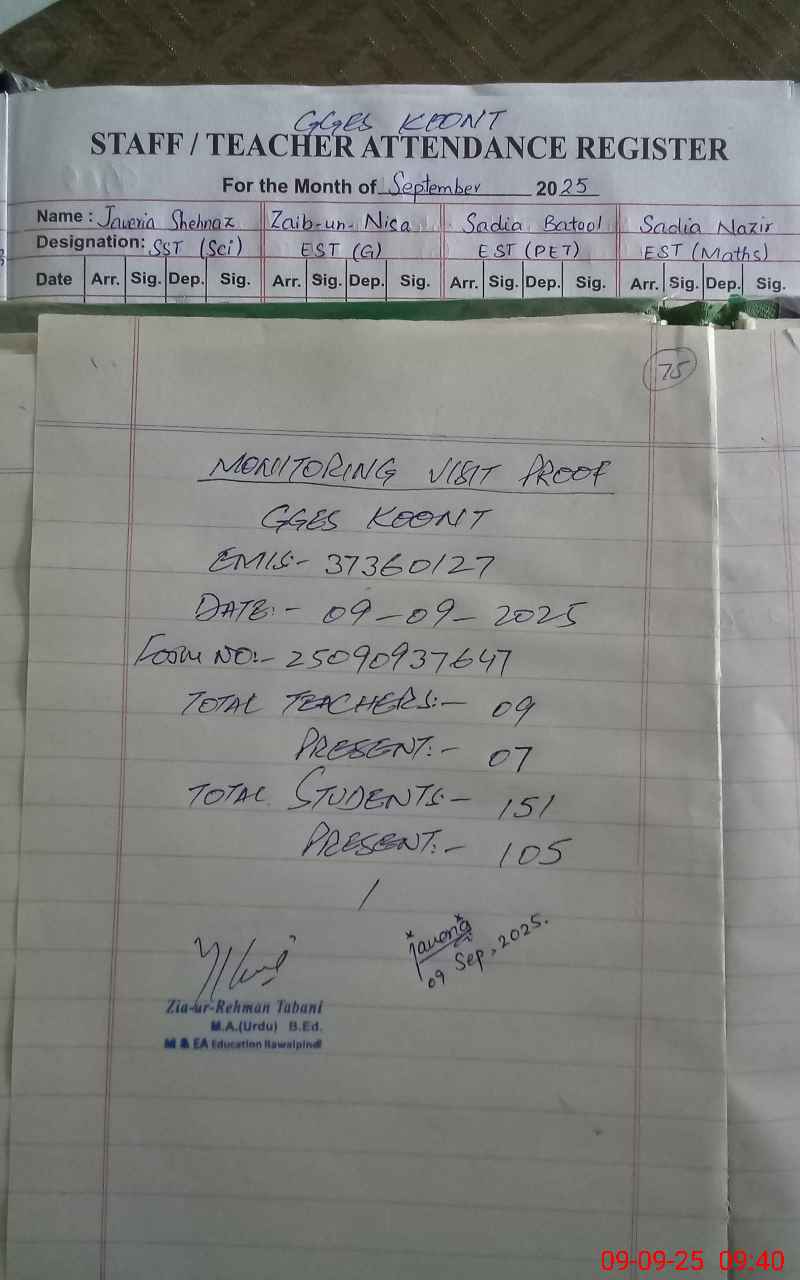 GGES KOONT
STAFF / TEACHER ATTENDANCE REGISTER
For the Month of September 2025
Name : Javeria Shehnaz Zaib-un-Nisa Sadia Batool Sadia Nazir
Designation: SST (Sci) EST (G) EST (PET) EST (Maths)
Date Arr. Sig. Dep. Sig. Arr. Sig. Dep. Sig. Arr. Sig. Dep. Sig. Arr. Sig. Dep. Sig.
75
MONITORING VISIT PROOF
GGES KOONT
EMIS:- 37360127
DATE:- 09-09-2025
Form NO:- 25090937647
TOTAL TEACHERS:- 09
PRESENT:- 07
TOTAL STUDENTS:- 151
PRESENT:- 105
09 Sep, 2025.
Zia-ur-Rehman Tabani
M.A.(Urdu) B.Ed.
M & EA Education Rawalpindi
09-09-25 09:40